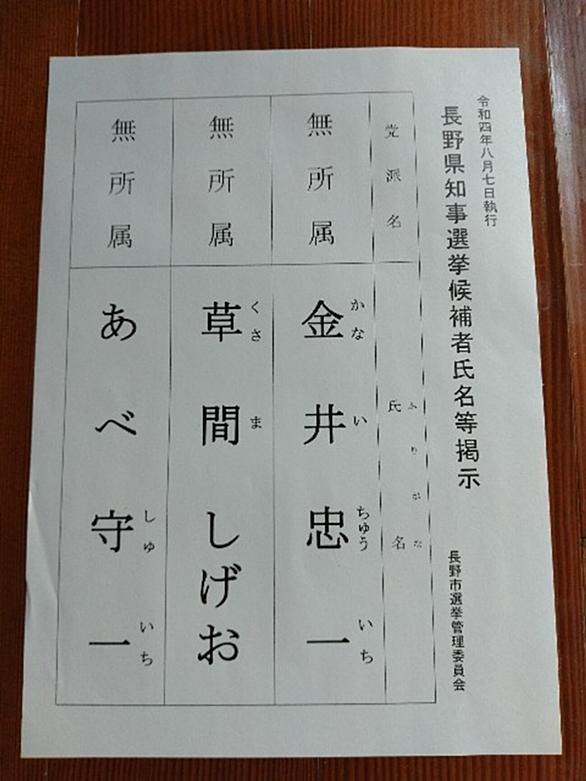 令和四年八月七日執行
長野県知事選挙候補者氏名等掲示
長野市選挙管理委員会
党派名
氏名
ふりがな
無所属
金井忠一
かないちゅういち
無所属
草間しげお
くさま
無所属
あべ守一
しゅいち